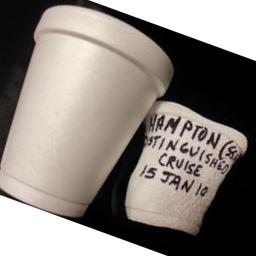 HAMPTON
DISTINGUISHED
CRUISE
15 JAN 10